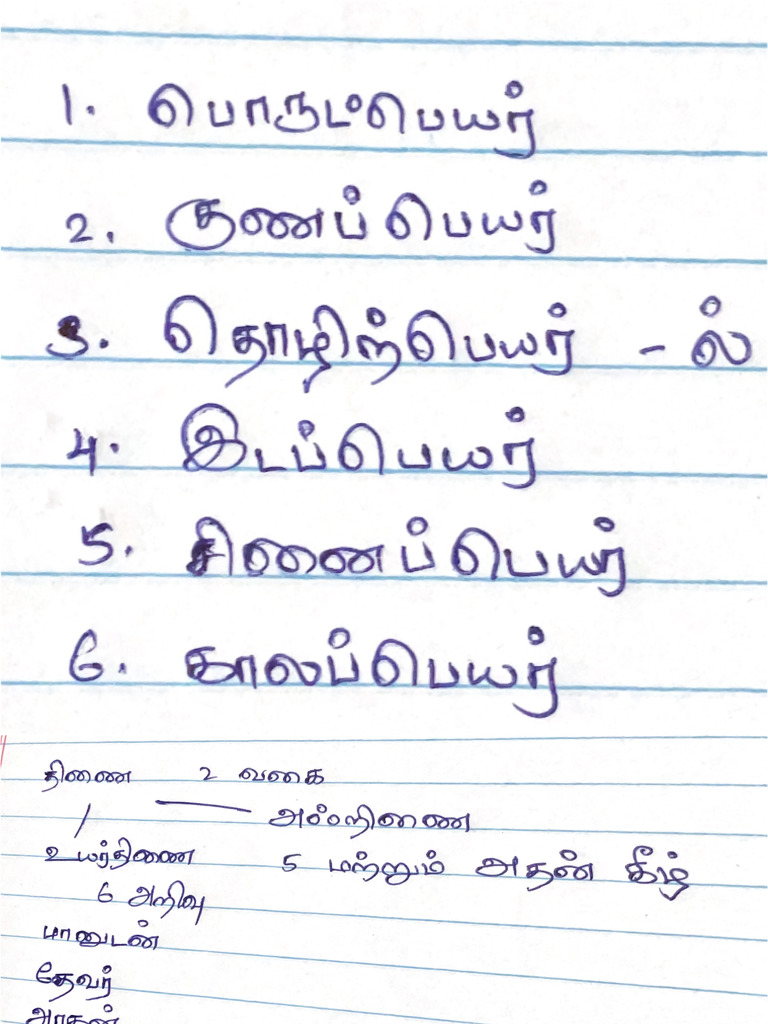 1. பொருட்பெயர்
2. குணப்பெயர்
3. தொழிற்பெயர் - ல்
4. இடப்பெயர்
5. சினைப்பெயர்
6. காலப்பெயர்
திணை 2 வகை
அஃறிணை
உயர்திணை 5 மற்றும் அதன் கீழ்
6 அறிவு
மானுடன்
தேவர்